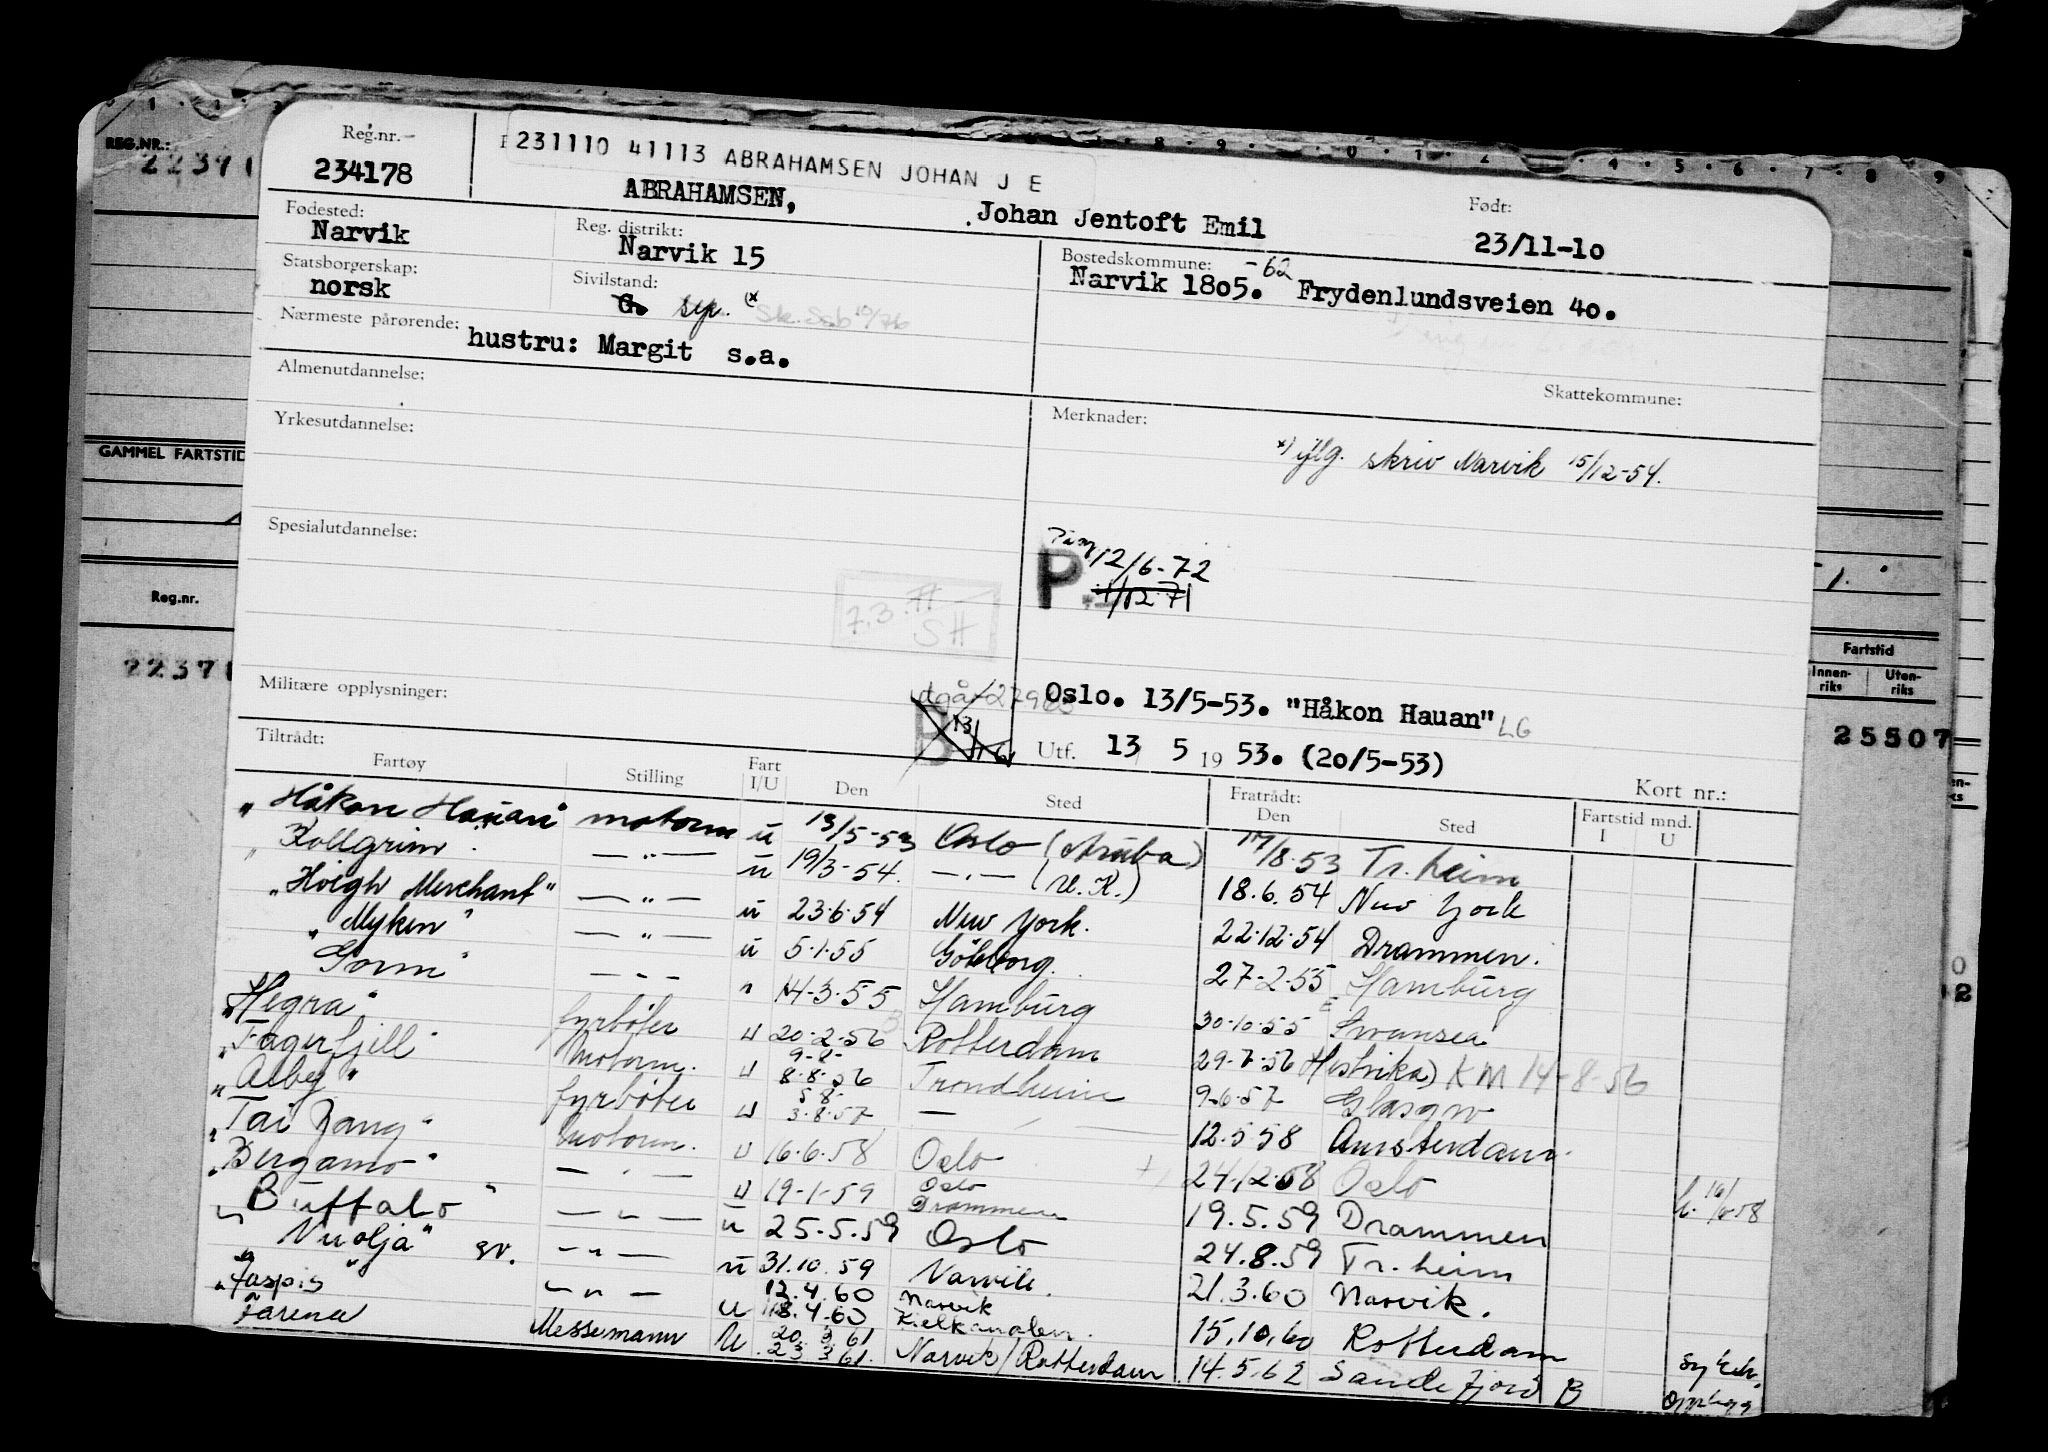 REG.NR.:
Reg.nr.
234178
231110 41113 ABRAHAMSEN JOHAN J E
ABRAHAMSEN, Johan Jentoft Emil
Født:
23/11-10
Fødested:
Narvik
Reg. distrikt:
Narvik 15
Bostedskommune:
Narvik 1805. -62 Frydenlundsveien 40.
Statsborgerskap:
norsk
Sivilstand:
G. sep. x
Nærmeste pårørende:
hustru: Margit s.a.
Skattekommune:
Almenutdannelse:
Yrkesutdannelse:
Merknader:
x) iflg. skriv Narvik 15/12-54.
Spesialutdannelse:
P 12/6-72
1/12-71
7.3.77
SH
GAMMEL FARTSTID
Reg.nr.
Fartstid
Innen-
riks
Uten-
riks
25507
Militære opplysninger:
Oslo. 13/5-53. "Håkon Hauan" LG
Utf. 13 5 1953. (20/5-53)
Kort nr.:
Tiltrådt:
Fartøy Stilling Fart I/U Den Sted Fratrådt: Den Sted Fartstid mnd. I U
"Håkon Hauan" motorm u 13/5-53 Oslo (Aruba) 17/8-53 Tr.heim
"Kollgrim" —"— u 19/3-54. —"— (U.K.) 18.6.54 New York
"Høigh Merchant" —"— u 23.6.54 New York. 22.12.54 Drammen.
"Myken" —"— u 5.1.55 Göteborg. 27-2-55 Hamburg
"Gorm" —"— " 14-3-55 Hamburg 30-10-55 Swansea
"Hegra" fyrbøter u 20-2-56 Rotterdam 29-7-56 KM 14-8-56
"Fagerfjell" Motorm. u 9-8- 8-8-56 Trondheim 9-6-57 Glasgow
"Alby" fyrbøter u 5 8- 3-8-57 — 12.5.58 Amsterdam
"Tai Yang" Motorm. u 16-6-58 Oslo 24-12-58 Oslo
"Bergamo" —"— u 19-1-59 Oslo Drammen 19.5.59 Drammen
"Buffalo" —"— u 25.5.59 Oslo 24.8.59 Tr.heim
"Nuolja" —"— u 31.10.59 Narvik. 21.3.60 Narvik.
"Jaspis" —"— u 12.4.60 18.4.60 Narvik Kielkanalen. 15.10.60 Rotterdam
Farena Messemann u 20.3.61 23.3.61. Narvik/Rotterdam 14.5.62 Sandefjord B
Opphugg